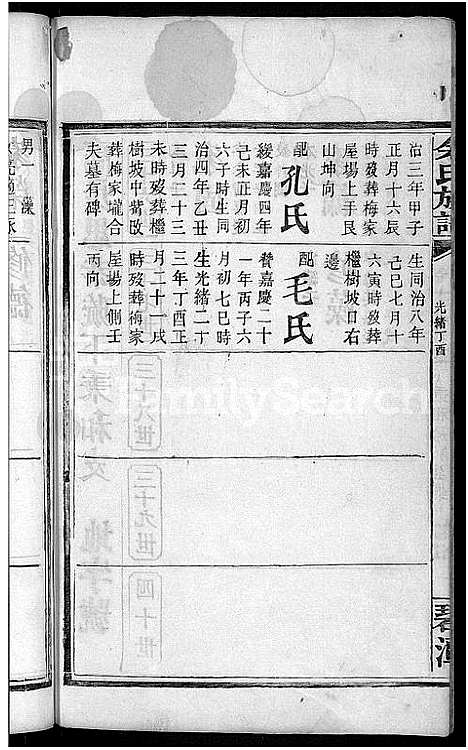 氏族譜
光緒丁酉
碧潭
治三年甲子
正月十六辰
時歿葬梅家
屋場上手艮
山坤向
配孔氏
綏嘉慶四年
己未正月初
六子時生同
治四年乙丑
三月二十三
未時歿葬檵
樹坡中嘴改
葬梅家壠合
夫墓有碑
生同治八年
己巳七月十
六寅時歿葬
檵樹坡口右
邊
配毛氏
嘉慶二十
一年丙子六
月初七巳時
生光緒二十
三年丁酉正
月二十一戌
時歿葬梅家
屋場上側壬
丙向
男一
FamilySearch